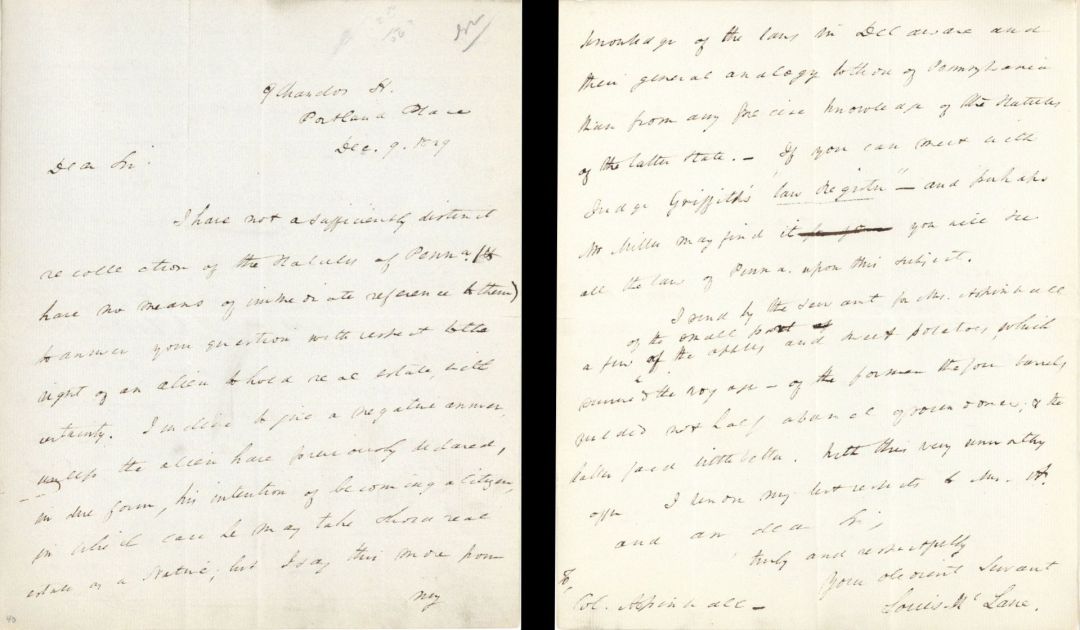 9 Chandos St.
Portland Place
Dec. 9. 1829
Dear Sir.
I have not a sufficiently distinct
recollection of the Statutes of Penna. (&
have no means of immediate reference to them)
to answer your question with respect to the
right of an alien to hold real estate, with
certainty. I incline to give a negative answer,
unless the alien have previously declared,
in due form, his intention of becoming a Citizen,
in which case he may take & hold real
estate as a Native; but I say this more from
my
knowledge of the laws in Delaware and
their general analogy to those of Pennsylvania
than from any precise knowledge of the Statutes
of the latter State. – If you can meet with
Judge Griffith's "law Register" – and perhaps
Mr Miller may find it you will see
all the law of Penna. upon this subject.
I send by the servant for Mrs. Aspinwall
a few of the apples and sweet potatoes, which
of the small part
survived the voyage – of the former the four barrels
yielded not half a bushel of sound ones; & the
latter fared little better. With this very unworthy
I renew my best respects to Mrs. A.
and am dear Sir,
truly and respectfully
Your obedient Servant
Louis McLane.
To,
Col. Aspinwall –
40